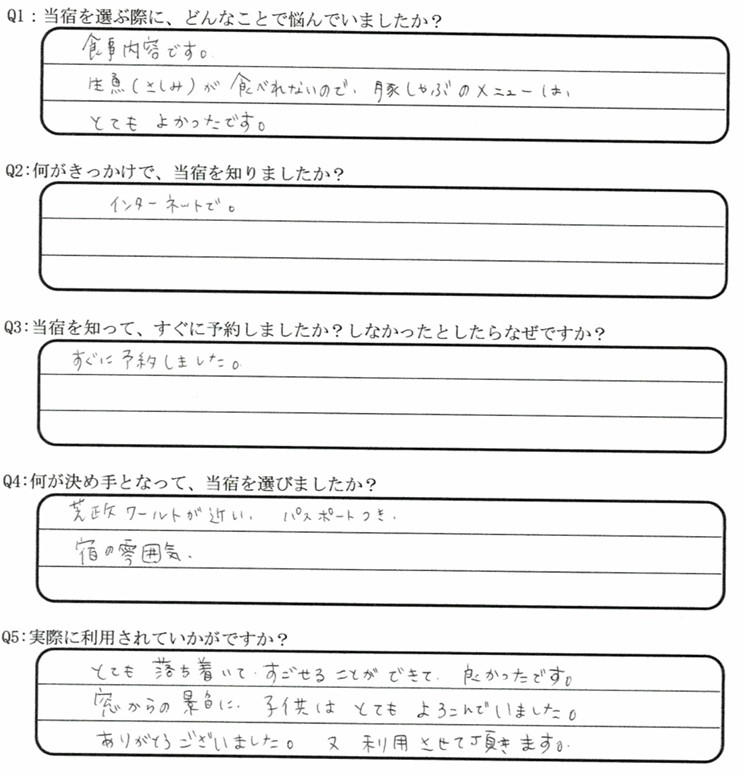 Q1：当宿を選ぶ際に、どんなことで悩んでいましたか？
食事内容です。
生魚(さしみ)が食べれないので、豚しゃぶのメニューは、
とても よかったです。
Q2:何がきっかけで、当宿を知りましたか？
インターネットで。
Q3:当宿を知って、すぐに予約しましたか？しなかったとしたらなぜですか？
すぐに予約しました。
Q4:何が決め手となって、当宿を選びましたか？
芝政ワールドが近い、 パスポートつき、
宿の雰囲気、
Q5:実際に利用されていかがですか？
とても 落ち着いて、すごせることができて、 良かったです。
窓からの景色に、子供は とても よろこんでいました。
ありがとうございました。 又 利用させて頂きます。